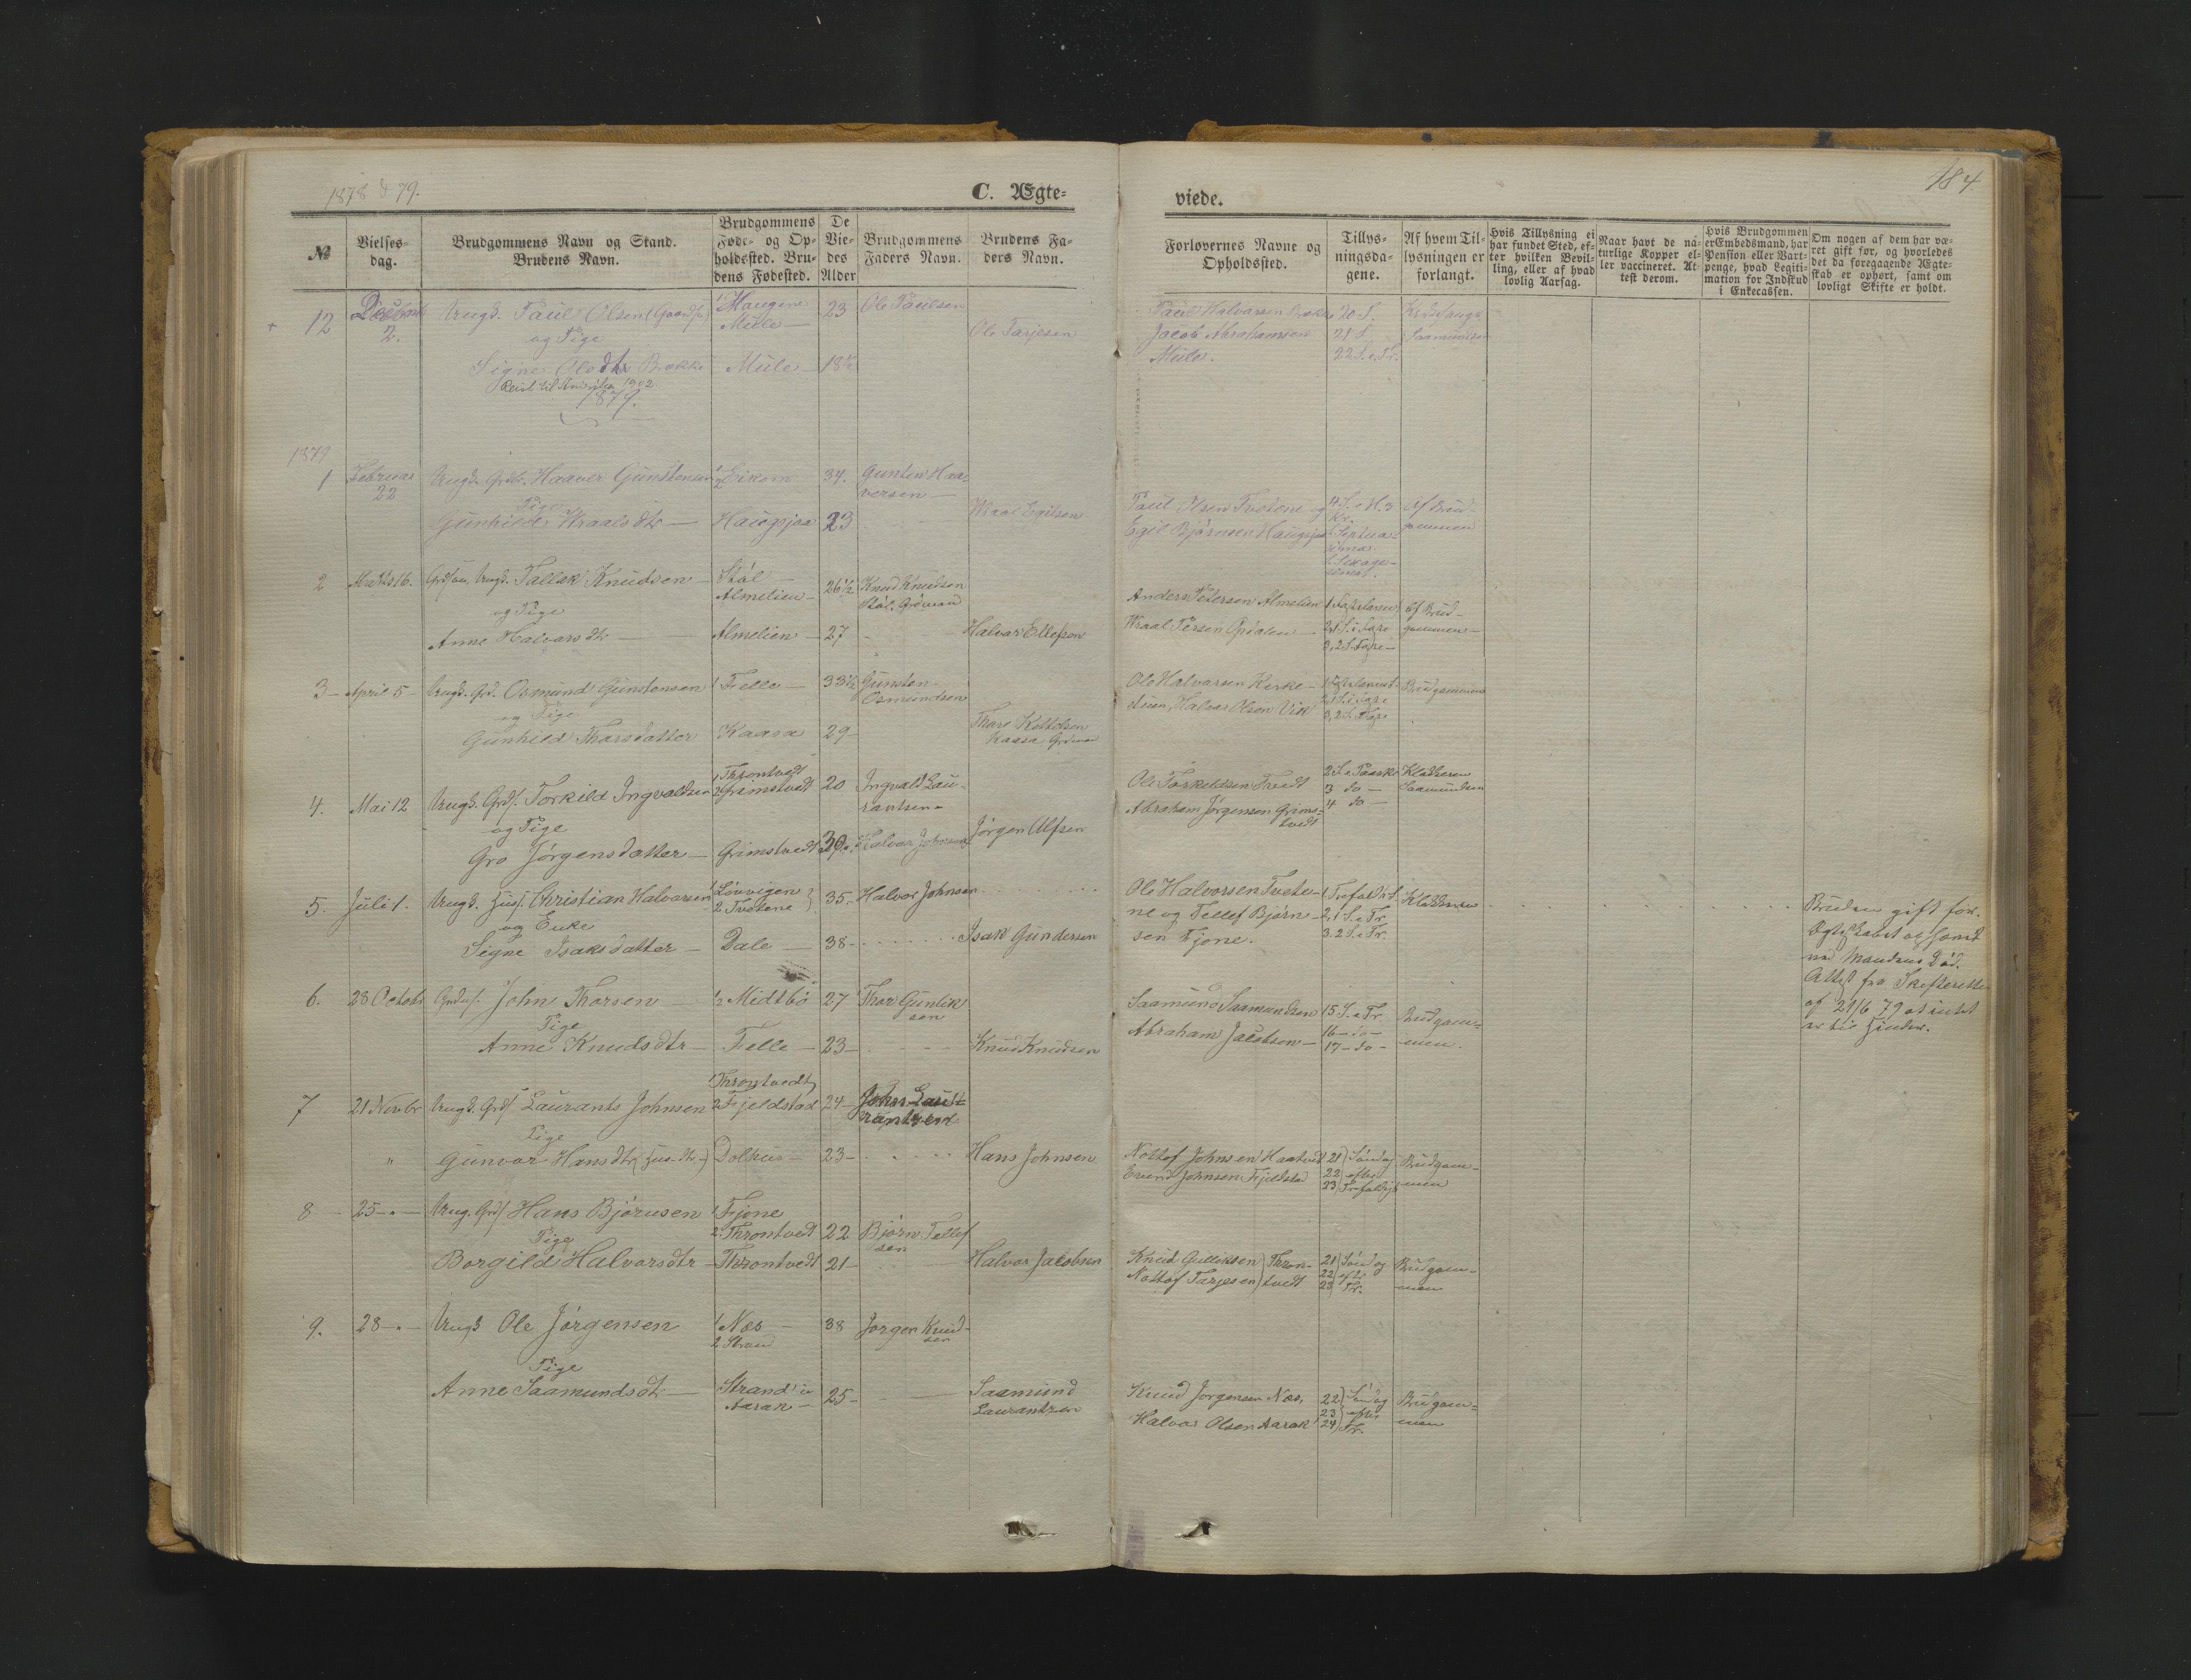 1878 & 79.
C. Ægte-
viede.
184
№
Vielses-
dag.
Brudgommens Navn og Stand.
Brudens Navn.
Brudgommens
Føde- og Op-
holdssted. Bru-
dens Fødested.
De
Vie-
des
Alder
Brudgommens
Faders Navn.
Brudens Fa-
ders Navn.
Forlovernes Navne og
Opholdssted.
Tillys-
ningsda-
gene.
Af hvem Til-
lysningen er
forlangt.
Hvis Tillysning ei
har fundet Sted, ef-
ter hvilken Bevil-
ling, eller af hvad
lovlig Aarsag.
Naar havt de na-
turlige Kopper el-
ler vaccineret. At-
test derom.
Hvis Brudgommen
er Embedsmand, har
Pension eller Vart-
penge, hvad Legiti-
mation for Indskud
i Enkecassen.
Om nogen af dem har væ-
ret gift før, og hvorledes
det da foregaaende Ægte-
skab er ophørt, samt om
lovligt Skifte er holdt.
12
2.
Ungk. Paul Olsen
og Pige
Signe Olsdtr Bakke
Reist til Amerika 1902
Haugene
Mule
Mule
23
18½
Ole Paulsen
Ole Tarjesen
Paul Halvarsen
Jacob Abrahamsen
Mule.
20 S.
21 S
22 S. e. Tr.
Saamundsen
1879.
1879
1
Februar
22
Ungk. Haaver Gunstensen
Pige
Gunhild Wraalsdtr
Eikom
Haugsjaa
34.
23
Gunsten Haa-
versen
Wraal Egilsen
Paul Olsen Tvetene og
Egil Bjørnsen Haugsjaa
4. S. e. H. 3
Kr.
Septua-
Af Brud-
gommen
2
Marts 16.
Ungk. Tallak Knudsen
og Pige
Anne Halvorsdtr
Stål
Almelien
Almelien
26½
27
Knud Knudsen
Stål. Grdmand
Halvor Ellefsen
Anders Pedersen Almelien
Wraal Persen
1 Fastelavn
2, 1 S. i Faste
3, 2 S. Faste
Af Brud-
gommen
3
April 5
Ungk. Grd. Osmund Gunstensen
og Pige
Gunhild Tharsdatter
1 Felle
Kaasa
33½
29
Gunsten
Osmundsen
Kaasa Grdman
Ole Halvarsen Kirke-
Halvor Olsen Vik
2, 1 S. i Faste
3, 2 S. Faste
Brudgommen
4.
Mai 12
Ungk. Grds. Torkild Ingvaldsen
og Pige
Gro Jørgensdatter
1 Throntvedt
2 Grimstvedt
Grimstvedt
20
30
Ingvald Lau-
rantsen
Halvor Johnsen
Jørgen Alfsen
Ole Torkildsen
Abraham Jørgensen Grims-
tvedt
2 S. e. Paaske
3 do
4 do
Klokkeren
Saamundsen
5.
Juli 1.
Ungk. Hus. Christian Halvorsen
og Enke
Signe Isaksdatter
1 Løvvigen
2 Tvetene
Dale
35
38
Halvor Johnsen
Isak Gundersen
Ole Halvorsen Tvete-
ne og Tellef Bjørn-
sen Fjone.
2, 1 S. e. Tr.
3. 2 S. e. Tr.
Klokkeren
Bruden gift før.
Ægteskabet
ved Mandens Død.
Attest fra Skifteretten
af 21/6 79 at intet
er til Hinder.
6.
28 Octobr
John Thorsen
Pige
Anne Knudsdtr
½ Midtbø
Felle
27
23
Thor Gunlik
sen
Knud Knudsen
Saamund Saamundsen
Abraham Jacobsen
15 S. e. Tr.
16 - do -
17 - do -
Brudgom-
men.
7
21 Novbr
Ungk. Grds Laurants Johnsen
Pige
Gunvor Hansdtr (Hus-dtr)
1 Throntvedt
2 Fjeldstad
Dolhus
24
23
John Lau-
rantzen
Hans Johnsen
Nottof Johnsen Haatvedt
Evend Johnsen Fjeldstad
21) Søndag
22 efter
23) Trefoldigh
Brudgom-
men
8
25
Ung. Grds Hans Bjørnsen
Pige
Borgild Halvorsdtr
1 Fjone
2. Throntvedt
Throntvedt
22
21
Bjørn Tellef
sen
Halvor Jacobsen
Knud Gulliksen) Thron-
Nottof Tarjesen) tvedt
21) Søndag
22 efter
23) Tr.
Brudgom-
men
9.
28
Ungk Ole Jørgensen
Pige
Anne Saamundsdtr
1 Næs
2 Strand
Strand i
Aarak
38
25
Jørgen Knud-
sen
Saamund
Laurantzen
Knud Jørgensen Næs,
Halvor Olsen Aarak
22) Søndag
23 efter
24) Tr.
Brudgom-
men